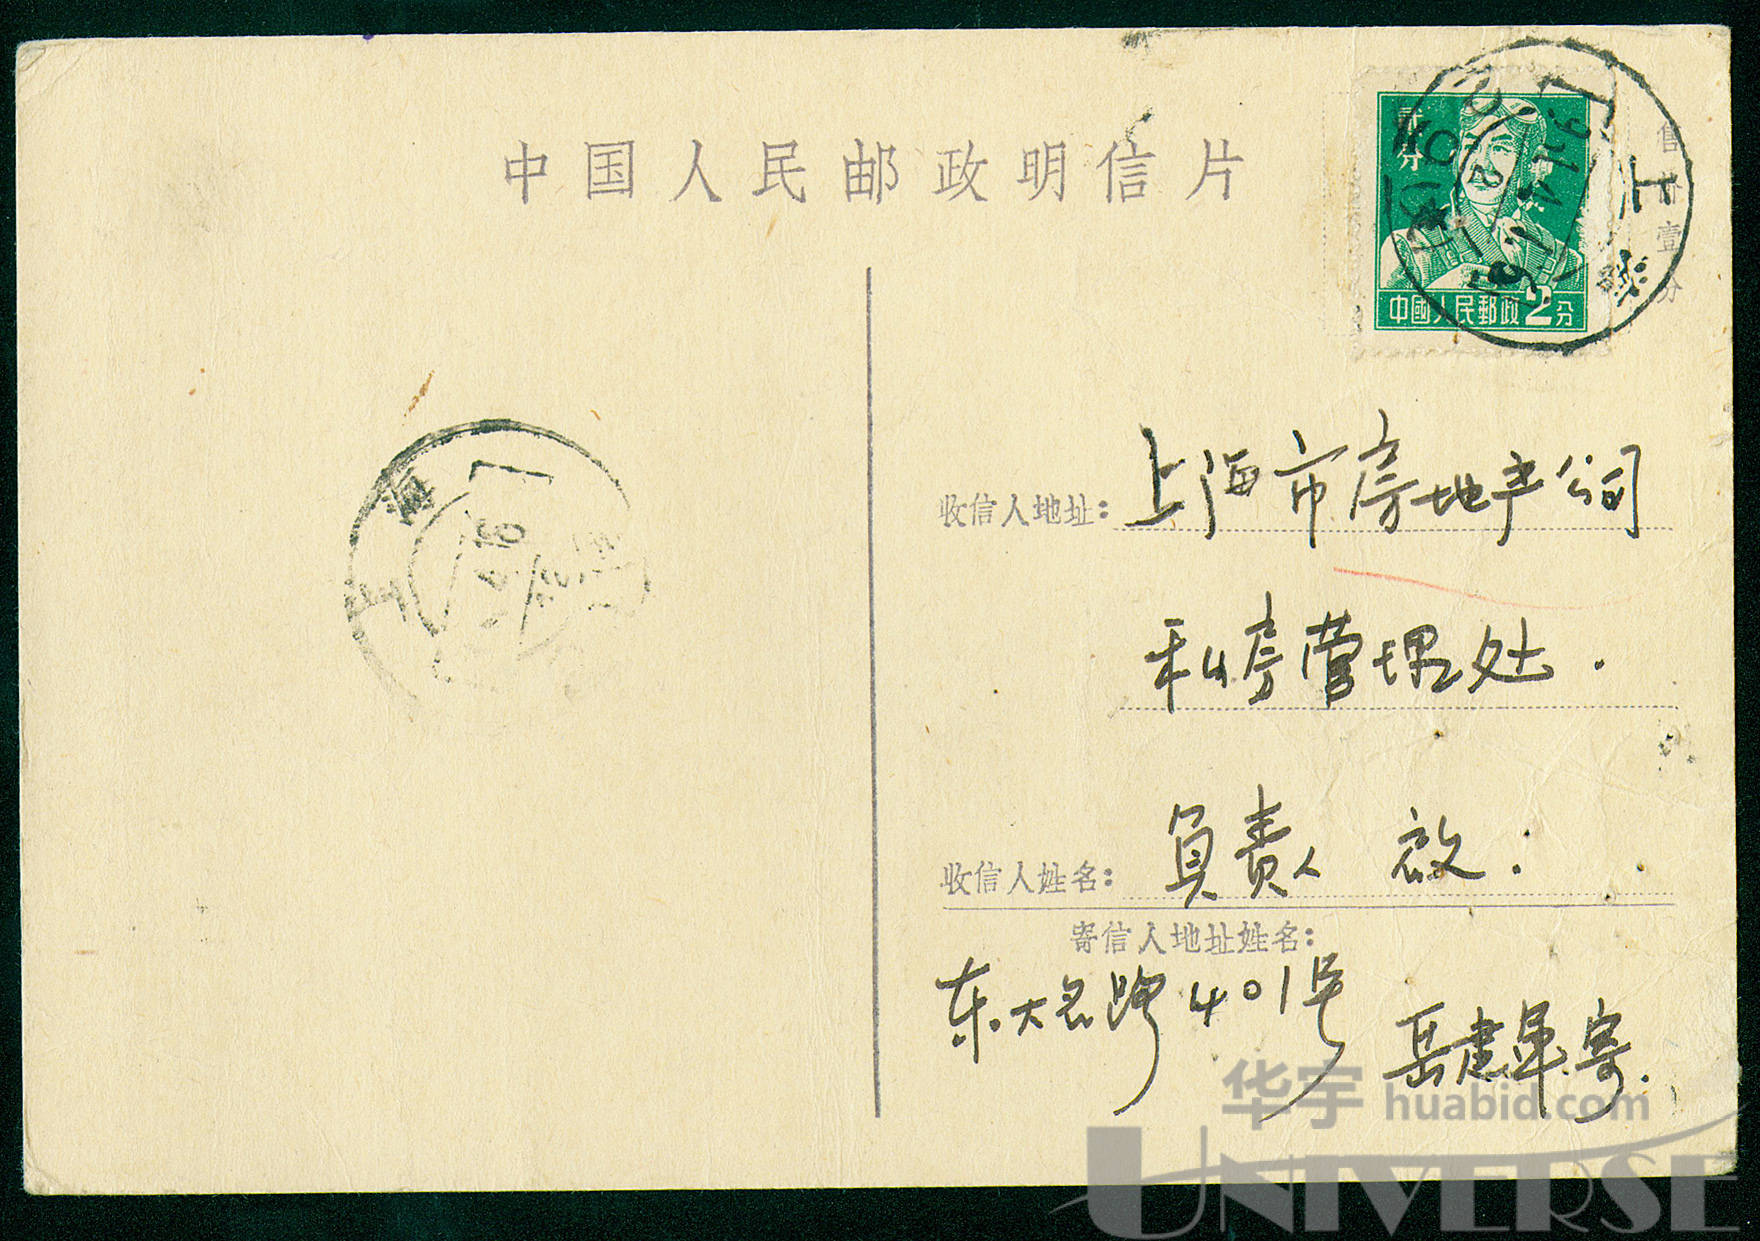 中国人民邮政明信片
贰分
中國人民郵政2分
售价壹分
上海
上海
收信人地址：上海市房地产公司
私房管理处.
收信人姓名：负责人 啟.
寄信人地址姓名：
东大名路401号
岳建军寄.
华宇 huabid.com
UNIVERSE